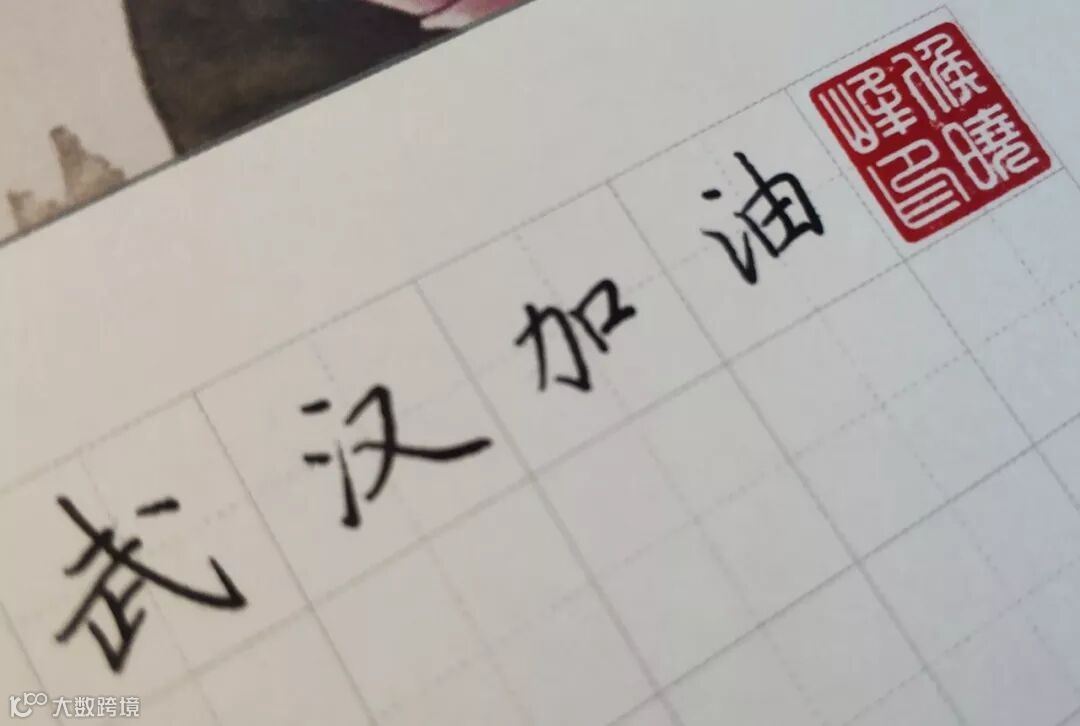 武汉加油
侯晓峰印
大数跨境